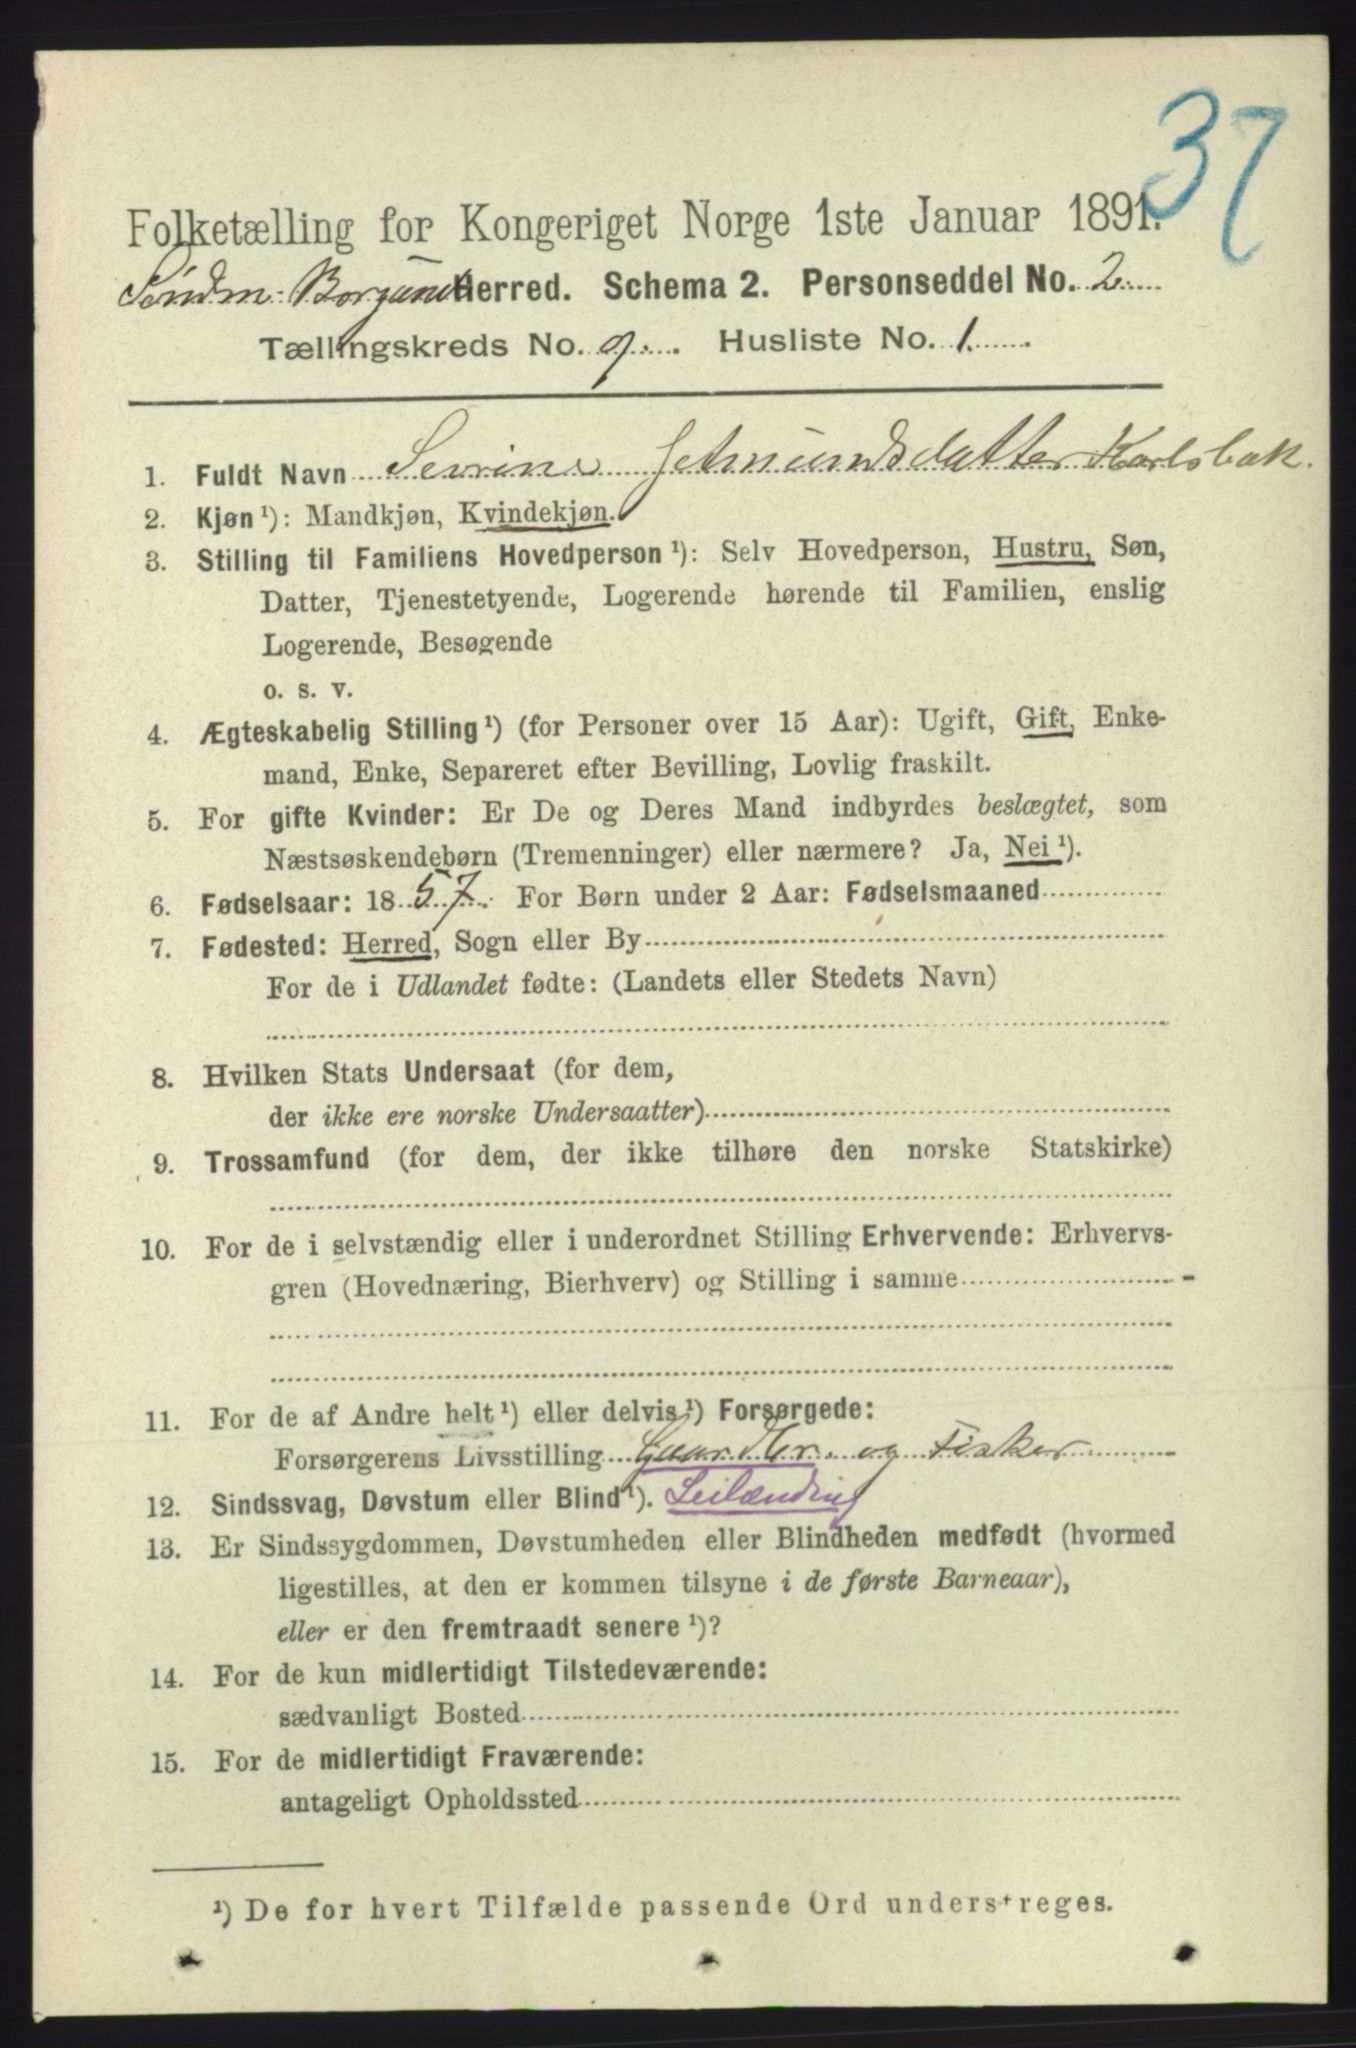 37
Folketælling for Kongeriget Norge 1ste Januar 1891.
Søndm: Borgund Herred. Schema 2. Personseddel No. 2.
Tællingskreds No. 9. Husliste No. 1.
1. Fuldt Navn Severine Jetmundsdatter Karlsbak.
2. Kjøn ¹): Mandkjøn, Kvindekjøn.
3. Stilling til Familiens Hovedperson ¹): Selv Hovedperson, Hustru, Søn,
Datter, Tjenestetyende, Logerende hørende til Familien, enslig
Logerende, Besøgende
o. s. v.
4. Ægteskabelig Stilling ¹) (for Personer over 15 Aar): Ugift, Gift, Enke-
mand, Enke, Separeret efter Bevilling, Lovlig fraskilt.
5. For gifte Kvinder: Er De og Deres Mand indbyrdes beslægtet, som
Næstsøskendebørn (Tremenninger) eller nærmere? Ja, Nei ¹).
6. Fødselsaar: 1857. For Børn under 2 Aar: Fødselsmaaned
7. Fødested: Herred, Sogn eller By
For de i Udlandet fødte: (Landets eller Stedets Navn)
8. Hvilken Stats Undersaat (for dem,
der ikke ere norske Undersaatter)
9. Trossamfund (for dem, der ikke tilhøre den norske Statskirke)
10. For de i selvstændig eller i underordnet Stilling Erhvervende: Erhvervs-
gren (Hovednæring, Bierhverv) og Stilling i samme -
11. For de af Andre helt ¹) eller delvis ¹) Forsørgede:
Forsørgerens Livsstilling Gaardbr. og Fisker
12. Sindssvag, Døvstum eller Blind ¹). Leilænding
13. Er Sindssygdommen, Døvstumheden eller Blindheden medfødt (hvormed
ligestilles, at den er kommen tilsyne i de første Barneaar),
eller er den fremtraadt senere ¹)?
14. For de kun midlertidigt Tilstedeværende:
sædvanligt Bosted
15. For de midlertidigt Fraværende:
antageligt Opholdssted
¹) De for hvert Tilfælde passende Ord understreges.